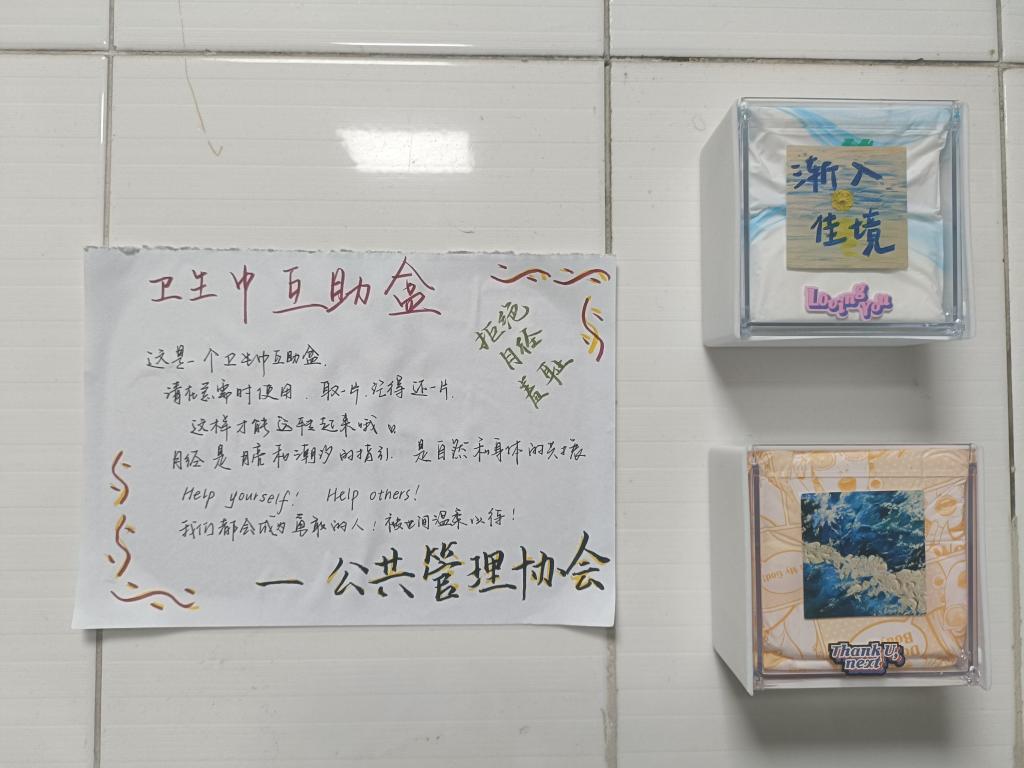 卫生巾互助盒
拒绝
月经
羞耻
这是一个卫生巾互助盒.
请在急需时使用. 取一片.记得还一片.
这样才能运转起来哦。
月经是月亮和潮汐的指引. 是自然和身体的关振
Help yourself! Help others!
我们都会成为勇敢的人!被世间温柔以待!
— 公共管理协会
渐入
佳境
Loving
You
My God!
Thank U,
next